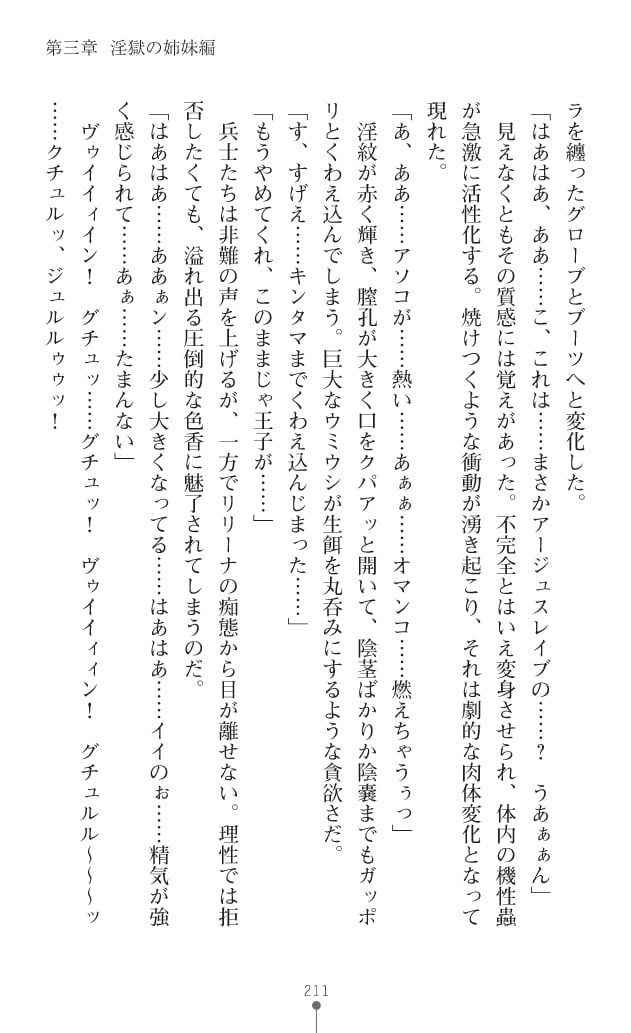 第三章　淫獄の姉妹編
ラを纏ったグローブとブーツへと変化した。
「はあはあ、ああ……こ、これは……まさかアージュスレイブの……?　うあぁぁん」
見えなくともその質感には覚えがあった。不完全とはいえ変身させられ、体内の機性蟲
が急激に活性化する。焼けつくような衝動が湧き起こり、それは劇的な肉体変化となって
現れた。
「あ、ああ……アソコが……熱い……あぁぁ……オマンコ……燃えちゃうぅっ」
淫紋が赤く輝き、膣孔が大きく口をクパアッと開いて、陰茎ばかりか陰嚢までもガッポ
リとくわえ込んでしまう。巨大なウミウシが生餌を丸呑みにするような貪欲さだ。
「す、すげえ……キンタマまでくわえ込んじまった……」
「もうやめてくれ、このままじゃ王子が……」
兵士たちは非難の声を上げるが、一方でリリーナの痴態から目が離せない。理性では拒
否したくても、溢れ出る圧倒的な色香に魅了されてしまうのだ。
「はあはぁ……ああぁン……少し大きくなってる……はあはぁ……イイのぉ……精気が強
く感じられて……あぁ……たまんない」
ヴゥイイィイン!　グチュッ……グチュッ!　ヴゥイイィィン!　グチュルル～～～ッ
……クチュルッ、ジュルルゥゥッ!
211